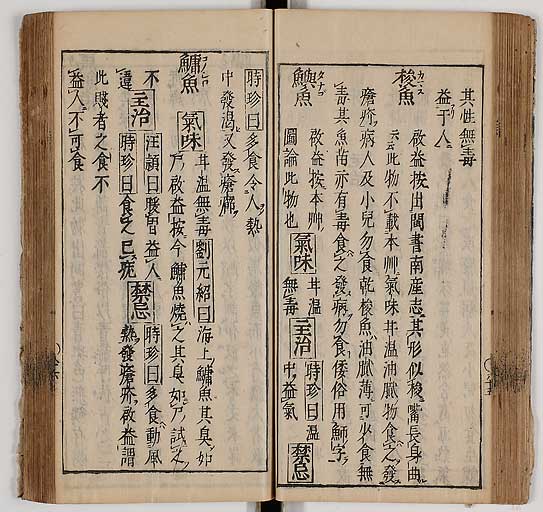 其性無毒
益于人
梭魚 カマス
啟益按出閩書南産志其形似梭嘴長身曲
云云此物不載本艸氣味甘温油膩物食之發
瘡疥病人及小兒勿食乾梭魚油膩薄可少食無
毒其魚苗亦有毒食之發病勿食倭俗用魳字
鱮魚 タナゴ
啟益按本艸
圖論此物也
氣味
甘温
無毒
主治
時珍曰温
中益氣
禁忌
時珍曰多食令人熱
中發渴又發瘡瘍
鱅魚
氣味
甘温無毒劉元紹曰海上鱅魚其臭如
尸啟益按今鱅魚燒之其臭如尸試之
不
違
主治
汪頴曰暖胃益人
時珍曰食之已疣
禁忌
時珍曰多食動風
熱發瘡疥啟益謂
此賤者之食不
益人不可食